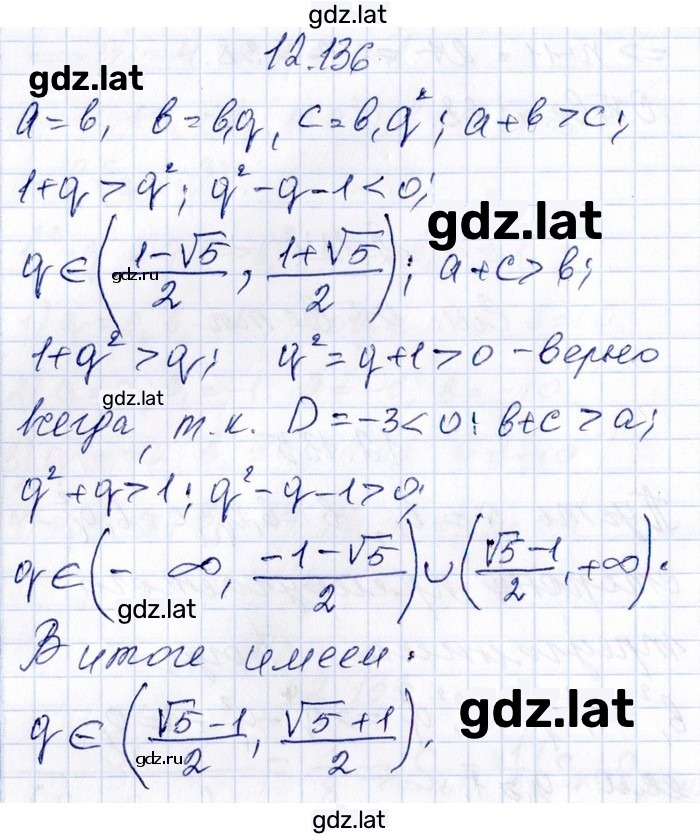 gdz.lat
12.136
gdz.lat
a = b, b = b,q, c = b,q²; a+b>c;
1+q > q²; q²-q-1<0;
gdz.lat
q∈((1-√5)/2, (1+√5)/2); a+c>b;
gdz.ru
1+q²>q; q²=q+1>0 - верно
gdz.lat
всегда, т.к. D=-3<0; b+c>a;
q²+q>1; q²-q-1>0;
q∈(-∞, (-1-√5)/2)∪((√5-1)/2, +∞).
gdz.lat
В итоге имеем:
gdz.lat
q∈((√5-1)/2, (√5+1)/2).
gdz.ru
gdz.lat